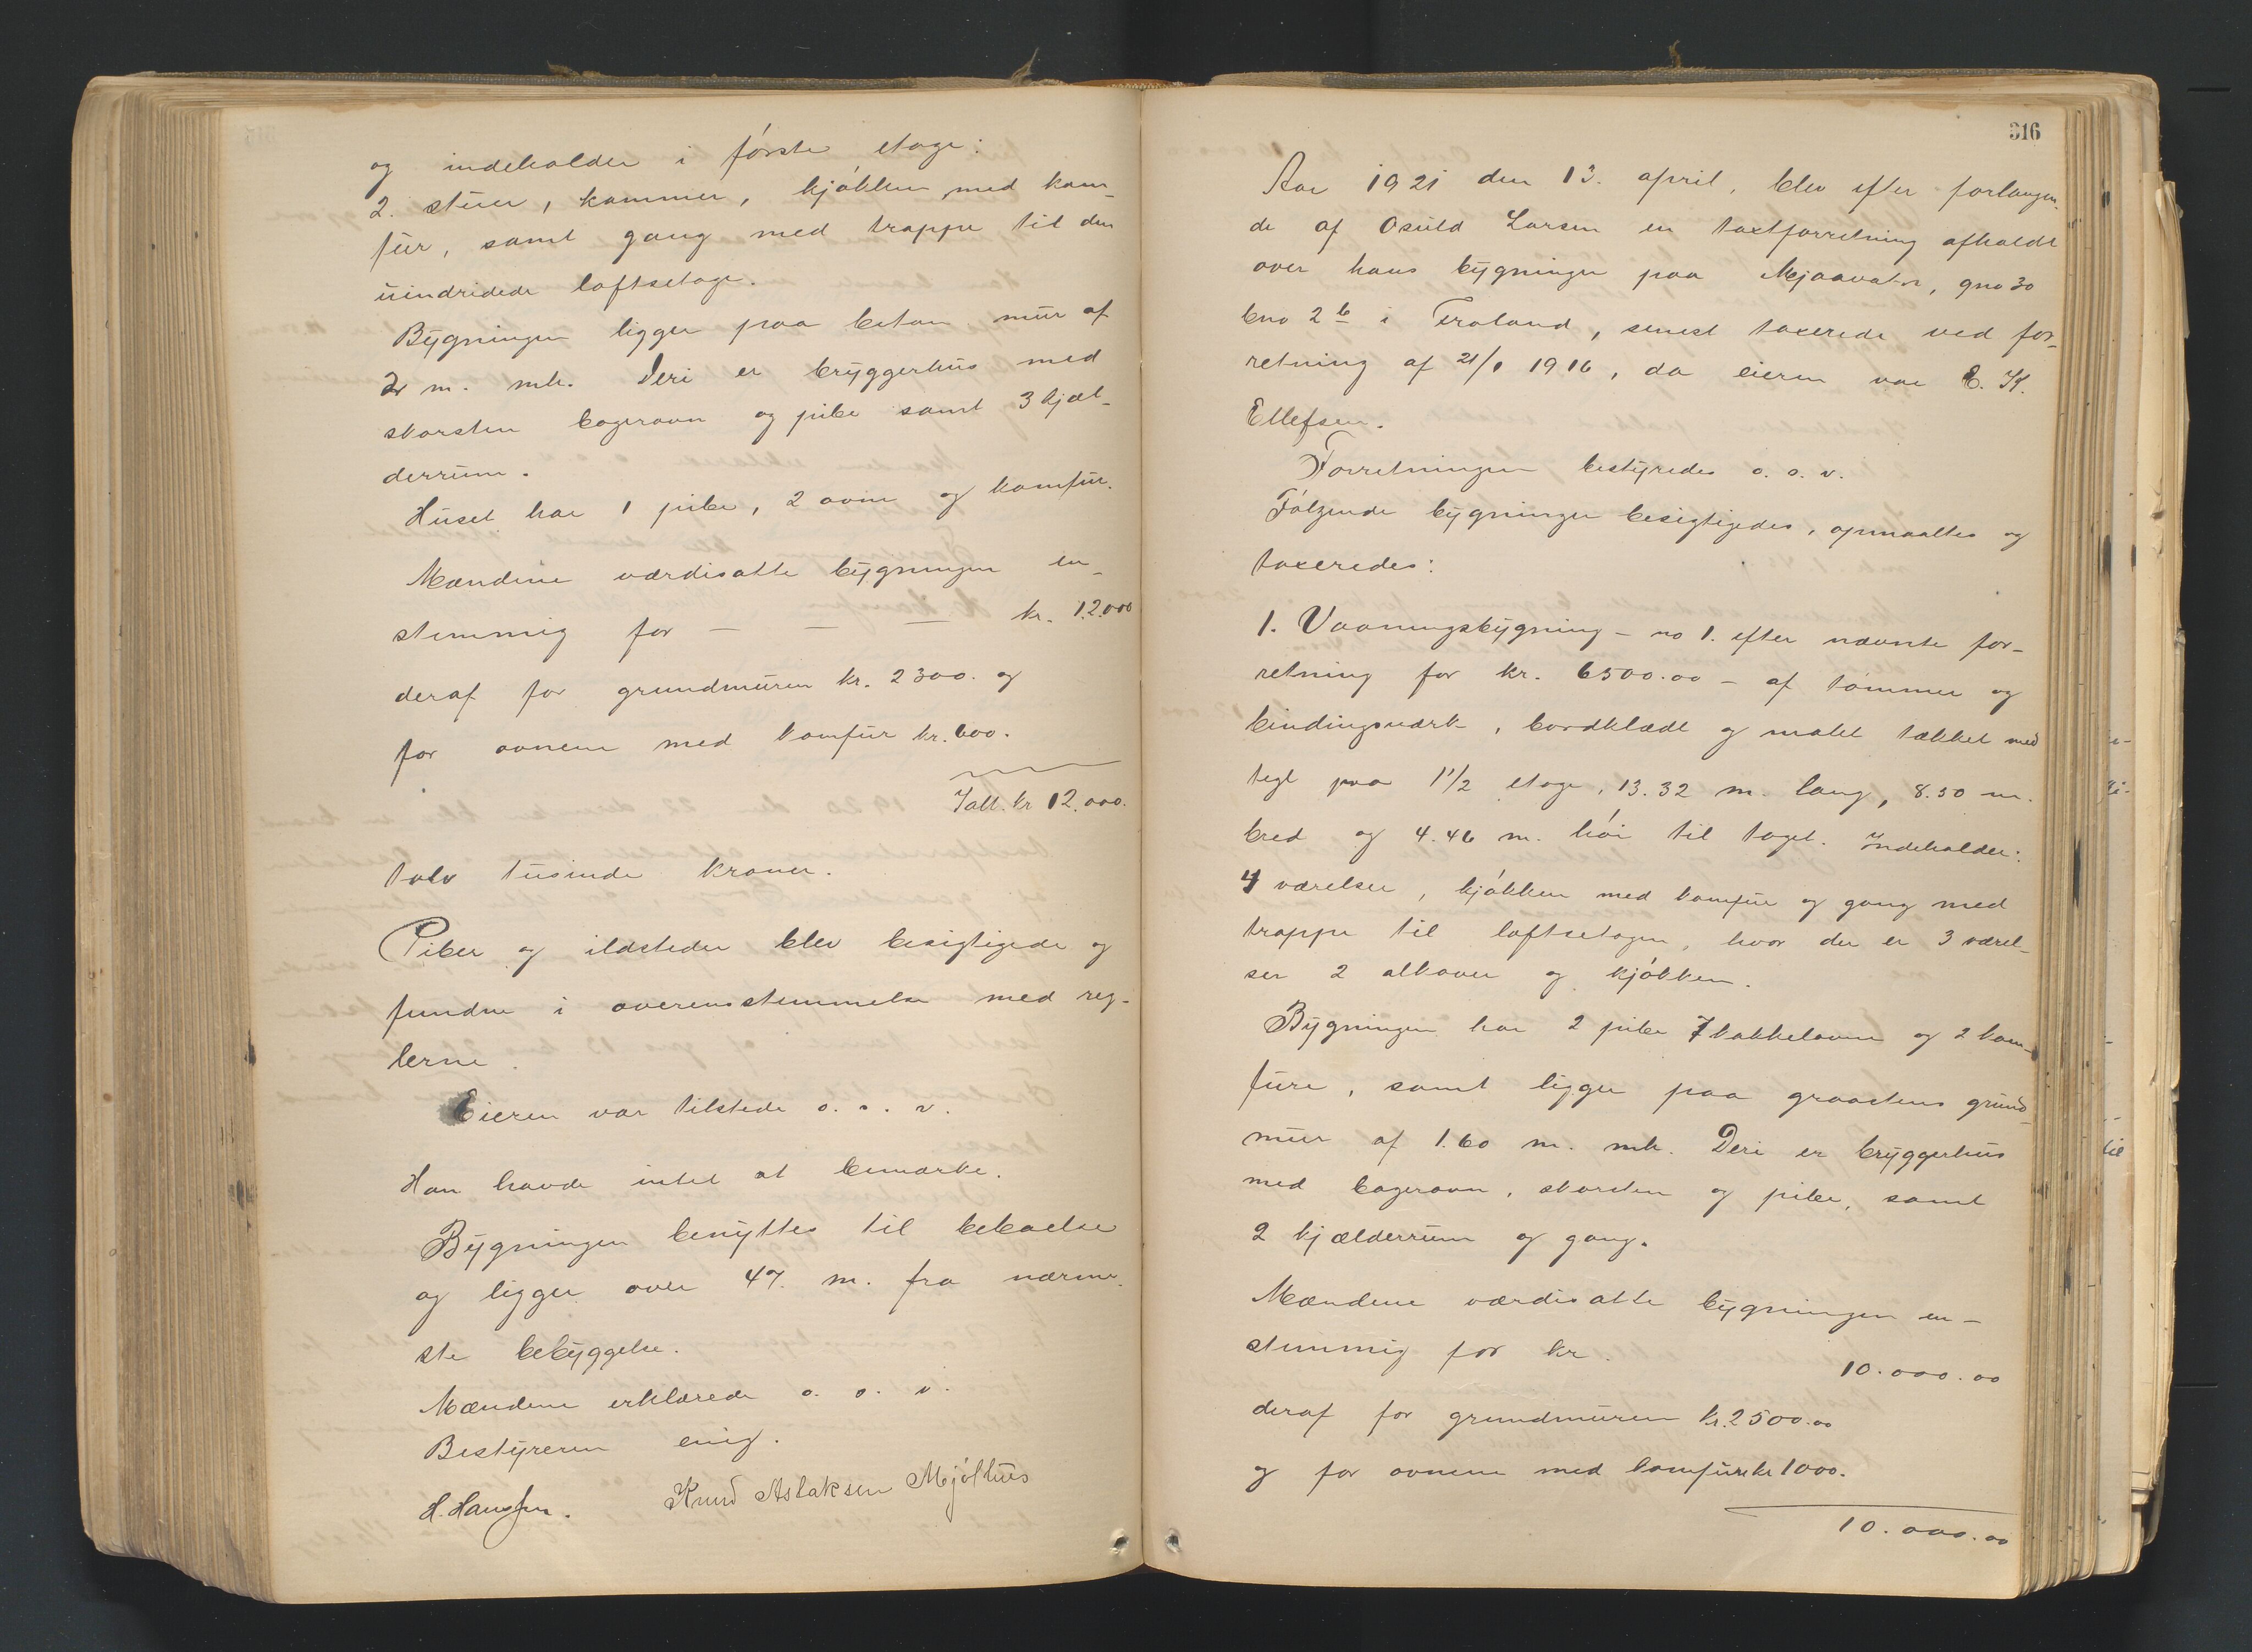 og indeholder i første etage:
2. stuer, kammer, kjøkken med kom-
fur, samt gang med trappe til den
uindridede loftsetage.
Bygningen ligger paa beton, mur af
2 m. mh. Deri er bryggerhus med
skorsten bagerovn og pibe samt 3 kjæl-
derrum.
Huset har 1 pibe, 2 ovne og komfur.
Mændene værdisatte bygningen en-
stemmig for — — — kr. 12.000
deraf for grundmuren kr. 2300. og
for ovnene med komfur kr. 600.
Ialt. kr 12.000.
tolv tusinde kroner.
Piber og ildsteder blev besigtigede og
fundne i overensstemmelse med reg-
lerne.
Eieren var tilstede o. s. v.
Han havde intet at bemærke.
Bygningen benyttes til beboelse
og ligger over 47. m. fra nærme-
ste bebyggelse.
Mændene erklærede o. s. v.
Bestyreren enig.
H. Hansen. Knud Aslaksen Mjølhus
316
Aar 1921 den 13. april, blev efter forlangen-
de af Osuld Larsen en taxtforretning afholdt
over hans bygninger paa Mjaavatn, gno 30
bno 2 b i Froland, senest taxerede ved for-
retning af 21/1 1916, da eieren var E. K.
Ellefsen.
Forretningen bestyredes o. s. v.
Følgende bygninger besigtigedes, opmaaltes og
taxeredes:
1. Vaaningsbygning - no 1. efter nævnte for-
retning for kr. 6500.00 - af tømmer og
bindingsværk, bordklædt og malet tækket med
tegl paa 1 1/2 etage, 13.32 m. lang, 8.50 m.
bred og 4.46 m. høi til taget. Indeholder:
4 værelser, kjøkken med komfur og gang med
trappe til loftsetagen, hvor der er 3 værel-
ser 2 alkover og kjøkken.
Bygningen har 2 piber 7 kakkelovne og 2 kom-
fure, samt ligger paa graastens grund
mur af 1.60 m. mh. Deri er bryggerhus
med bagerovn, skorsten og pibe, samt
2 kjælderrum og gang.
Mændene værdisatte bygningen en-
stemmig for kr. 10.000.00
deraf for grundmuren kr. 2500.00
og for ovnene med komfure kr 1000.
10.000.00